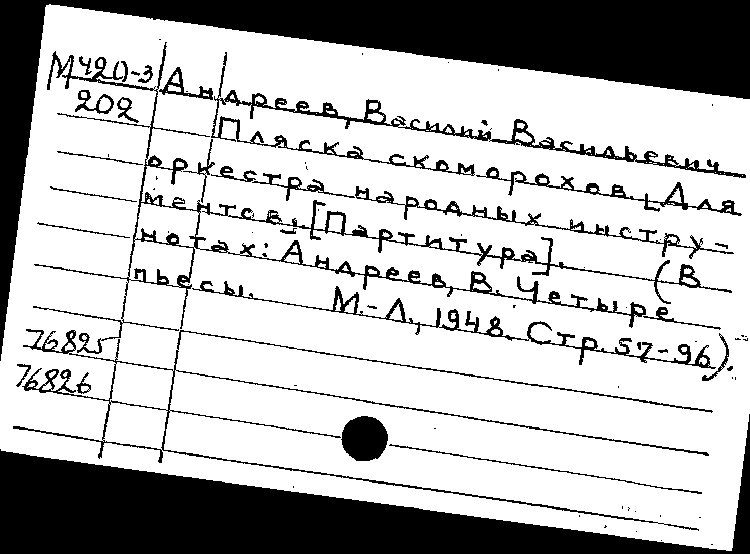 М420-3 Андреев, Василий Васильевич
202 Пляска скоморохов. [Для
оркестра народных инстру-
ментов]. [Партитура]. (В
нотах: Андреев, В. Четыре
пьесы. М.-Л., 1948. Стр. 57-96).
76825
76826